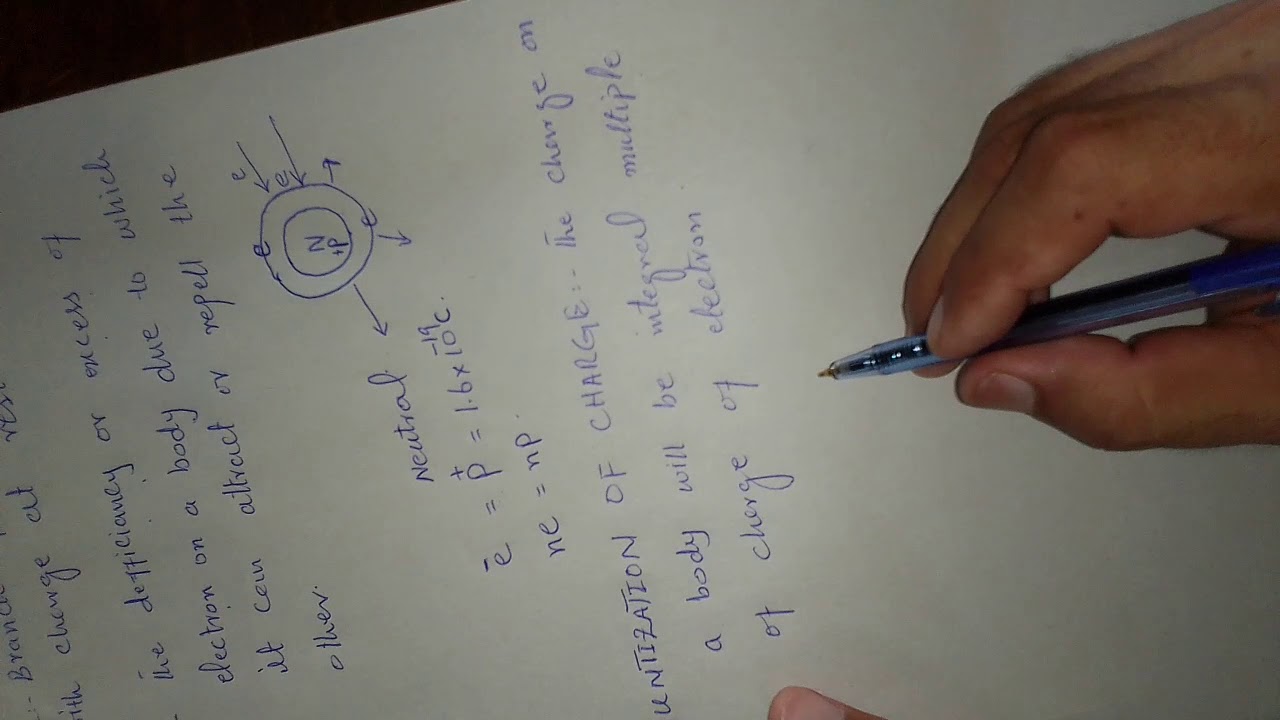 :- Branch
with charge at rest
- The defficiancy or excess of
electron on a body due to which
it can attract or repell the
other.
e e
e N e
+P
Neutral
e̅ = p⁺ = 1.6 × 10⁻¹⁹C.
ne = np.
UNTIZATION OF CHARGE:- The charge on
a body will be integral multiple
of charge of electron